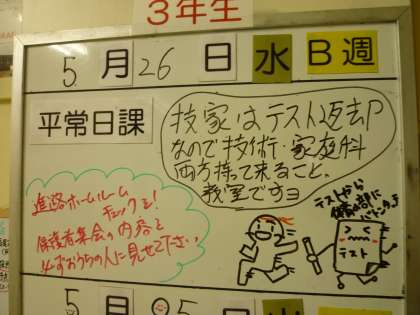 3年生
5月26日 水 B週
平常日課
技家はテスト返却
なので技術・家庭科
両方持って来ること。
教室ですョ
進路ホームルーム
チェックを!
保護者集会の内容を
必ずおうちの人に見せて下さい。
テストから
バトンタッチ
テスト
5月 5日